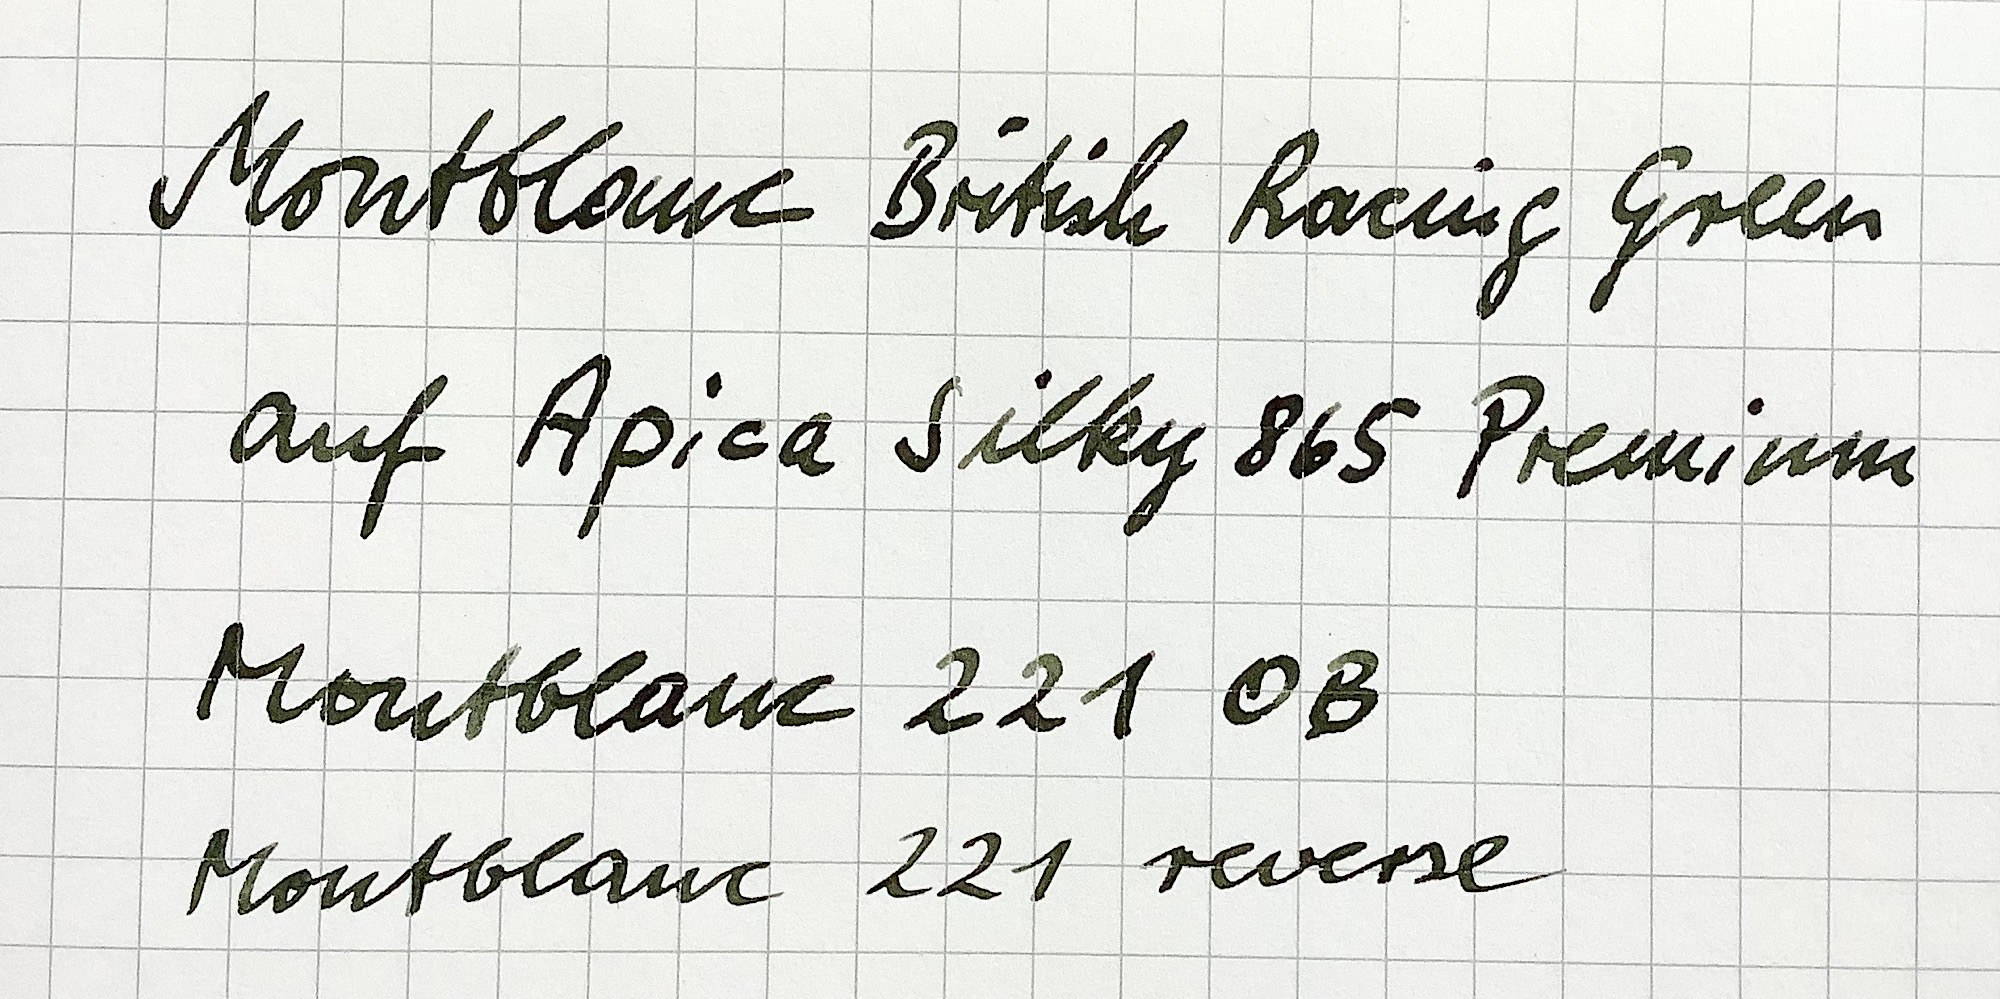 Montblanc British Racing Green
auf Apica Silky 865 Premium
Montblanc 221 OB
Montblanc 221 reverse